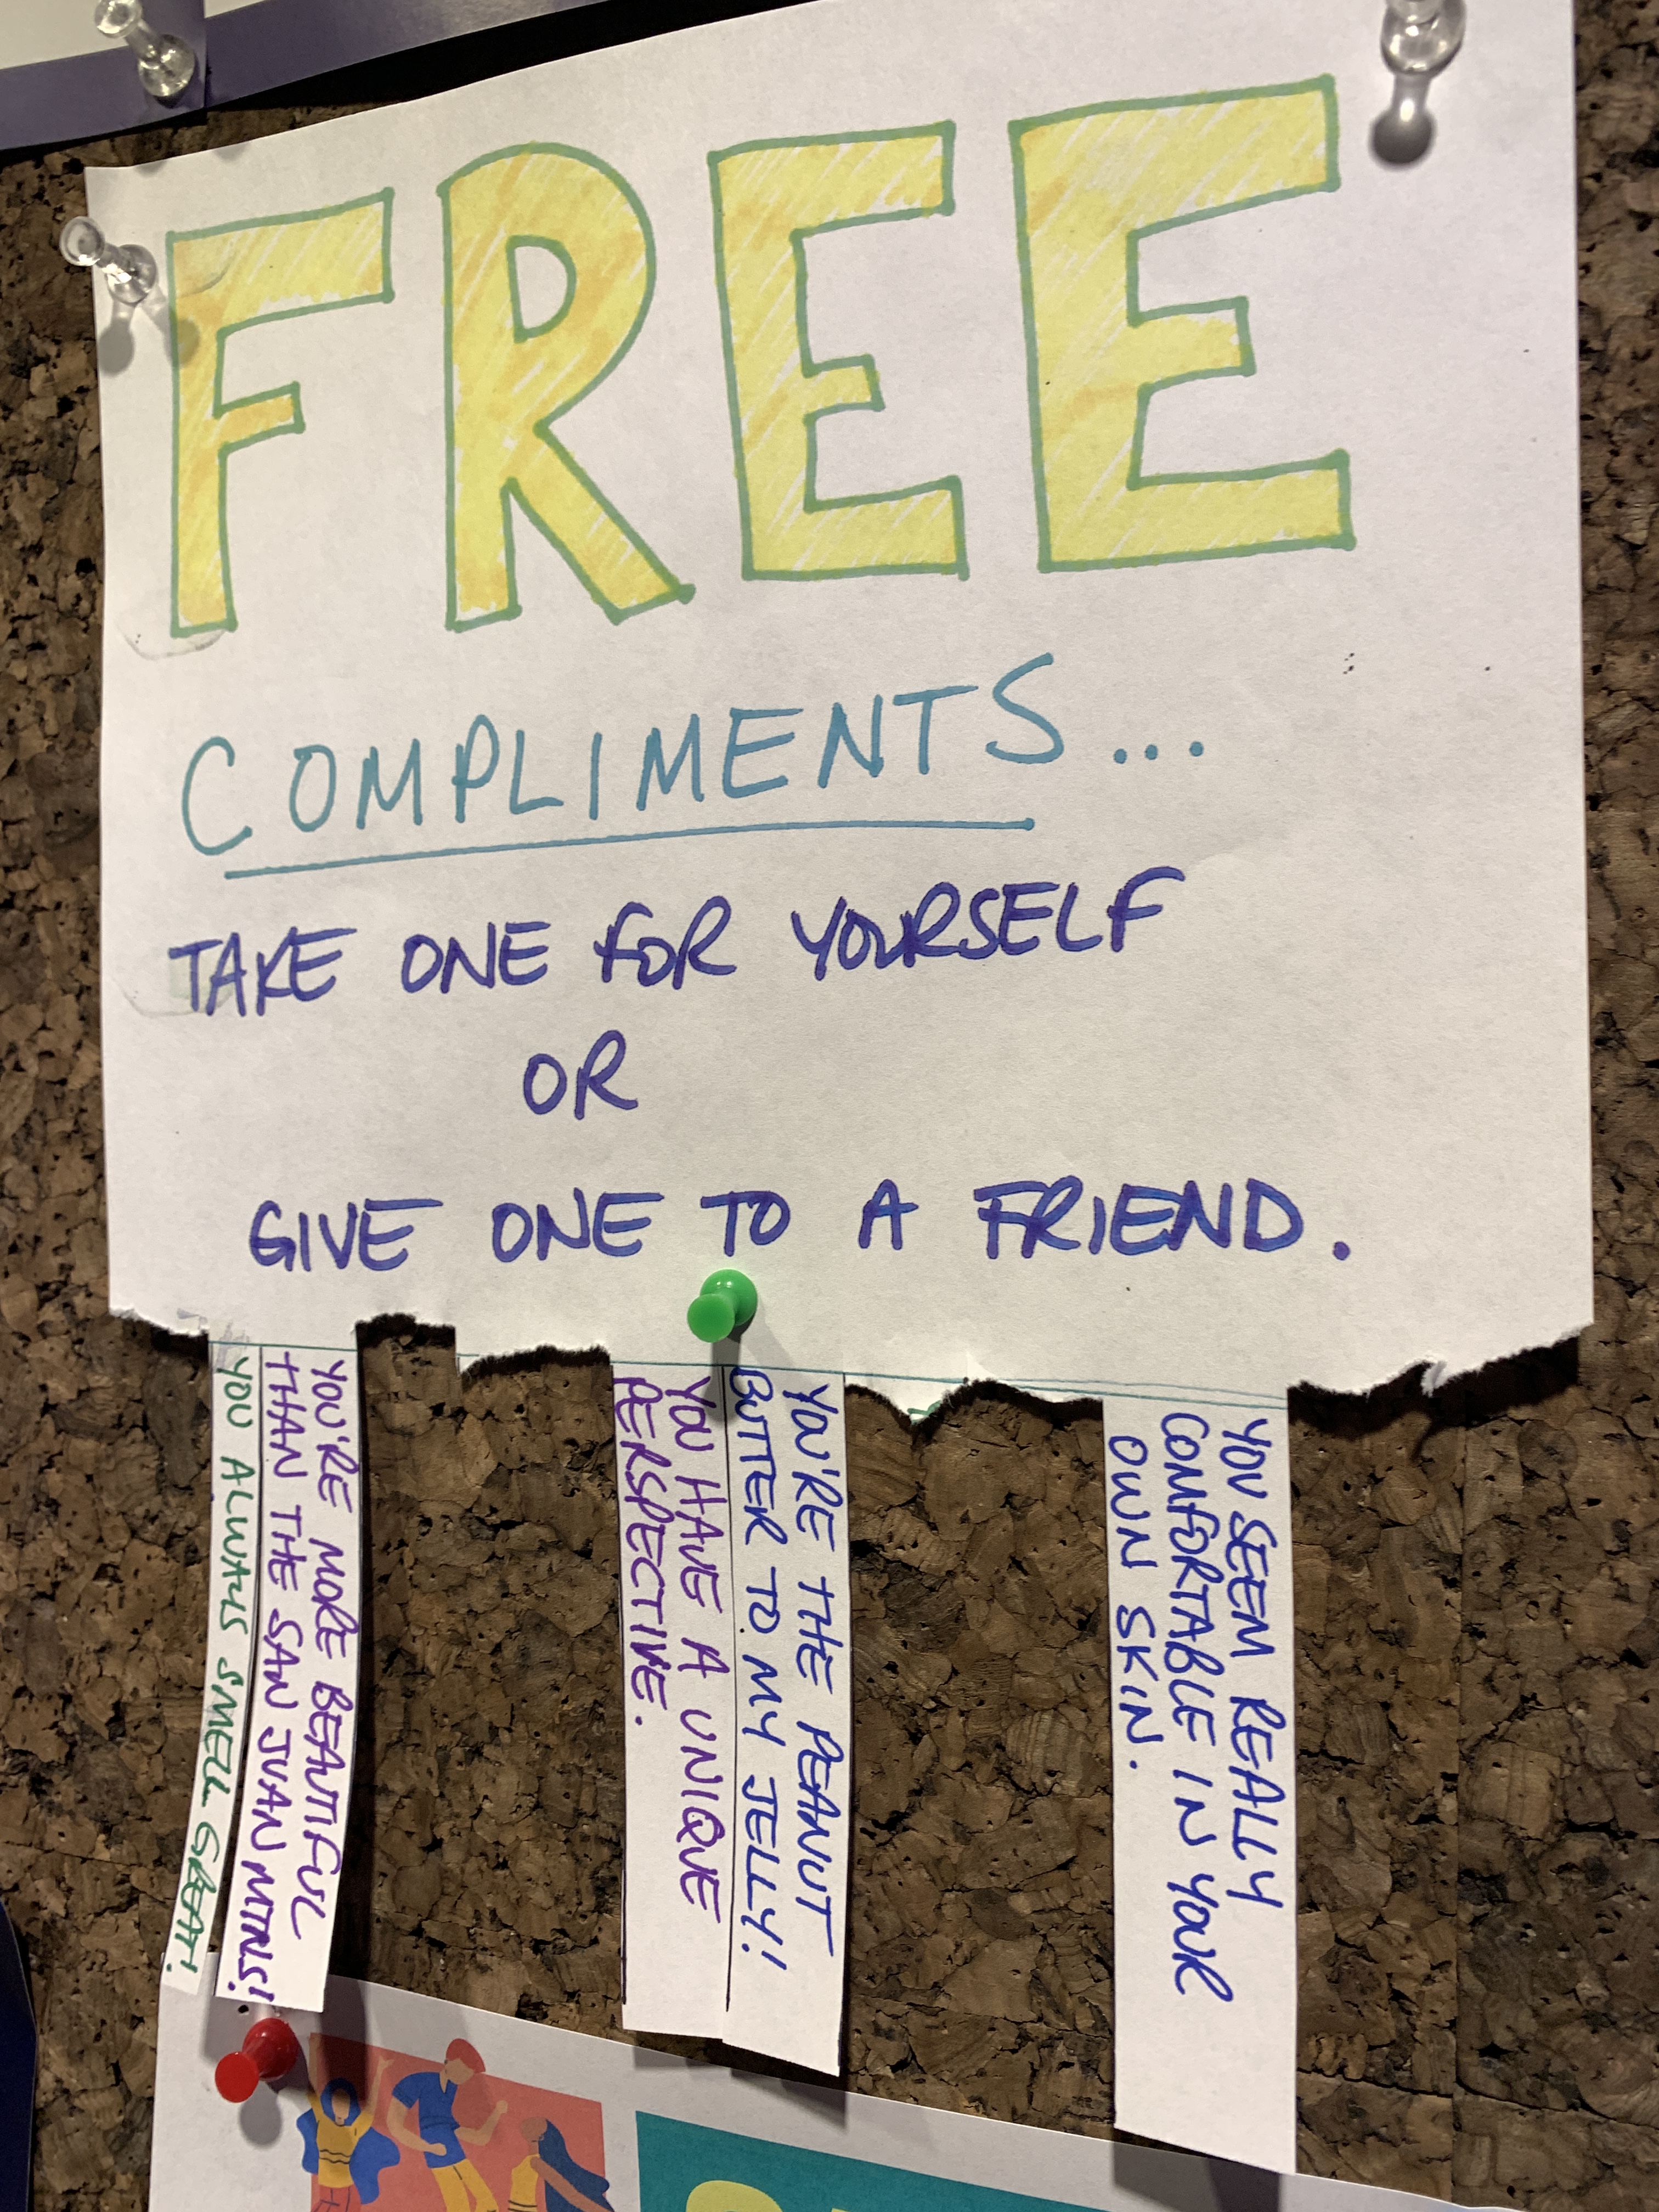 FREE
COMPLIMENTS...
TAKE ONE FOR YOURSELF
OR
GIVE ONE TO A FRIEND.
YOU ALWAYS SMELL GREAT!
YOU'RE MORE BEAUTIFUL
THAN THE SAN JUAN MTNS!
YOU HAVE A UNIQUE
PERSPECTIVE.
YOU'RE THE PEANUT
BUTTER TO MY JELLY!
YOU SEEM REALLY
COMFORTABLE IN YOUR
OWN SKIN.